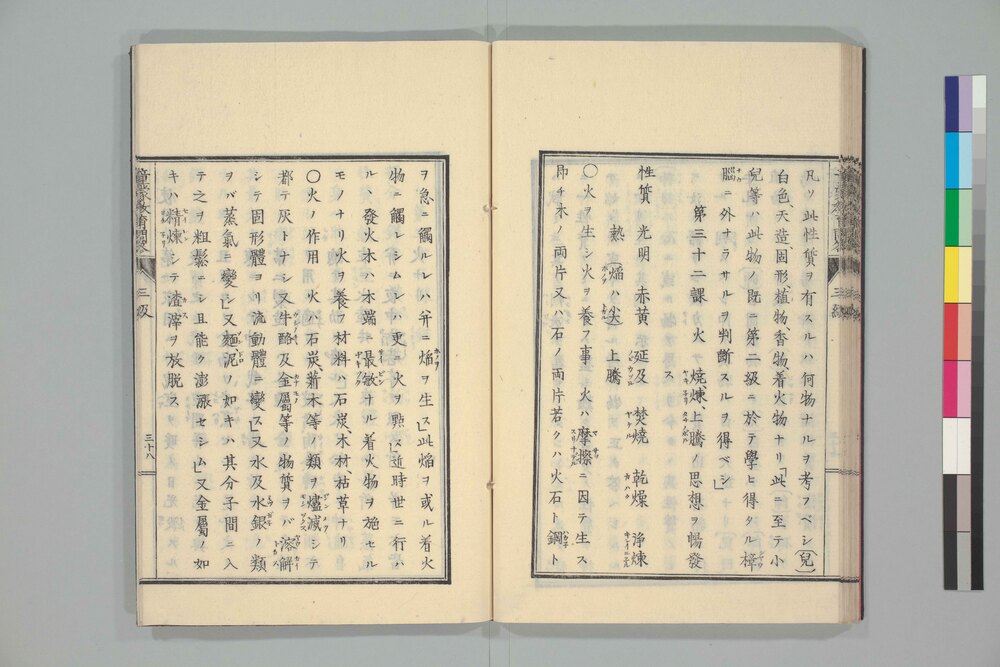 凡ソ此性質ヲ有スルハ何物ナルヲ考フベシ(兒)
白色、天造、固形、植物、香物、着火物ナリ」此ニ至テ小
兒等ハ此物ノ既ニ第二級ニ於テ學ヒ得タル樟
腦ニ外ナラサルヲ判断スルヲ得ベシ」
第三十二課 火 燒煉、上騰ノ思想ヲ暢發
ス
性質 光明 赤黄 延及 焚燒 乾燥 淨煉
熱 (焔ハ尖) 上騰
〇火ヲ生シ火ヲ養フ事 火ハ摩擦ニ因テ生ス
即チ木ノ両片又ハ石ノ両片若クハ火石ト鋼ト
ヲ急ニ觸ルレハ弁ニ焔ヲ生ス」此焔ヲ或ル着火
物ニ觸レシムレハ更ニ火ヲ㸃ヒ」近時世ニ行ハ
ルハ發火木ハ木端ニ最敏ナル着火物ヲ施セル
モノナリ火ヲ養フ材料ハ石炭、木材、枯草ナリ
〇火ノ作用 火ハ石炭、薪木等ノ類ヲ燼滅シテ
都テ灰トナシ又牛酪及金屬等ノ物質ヲバ溶解
シテ固形體ヨリ流動體ニ變ス」又水及水銀ノ類
ヲバ蒸氣ニ變ヒ」又麺、泥ノ如キハ其分子間ニ入
テ之ヲ粗鬆ニシ且能ク澎漲セシム」又金屬ノ如
キハ精煉シテ渣滓ヲ放脱ス
三級
三十八